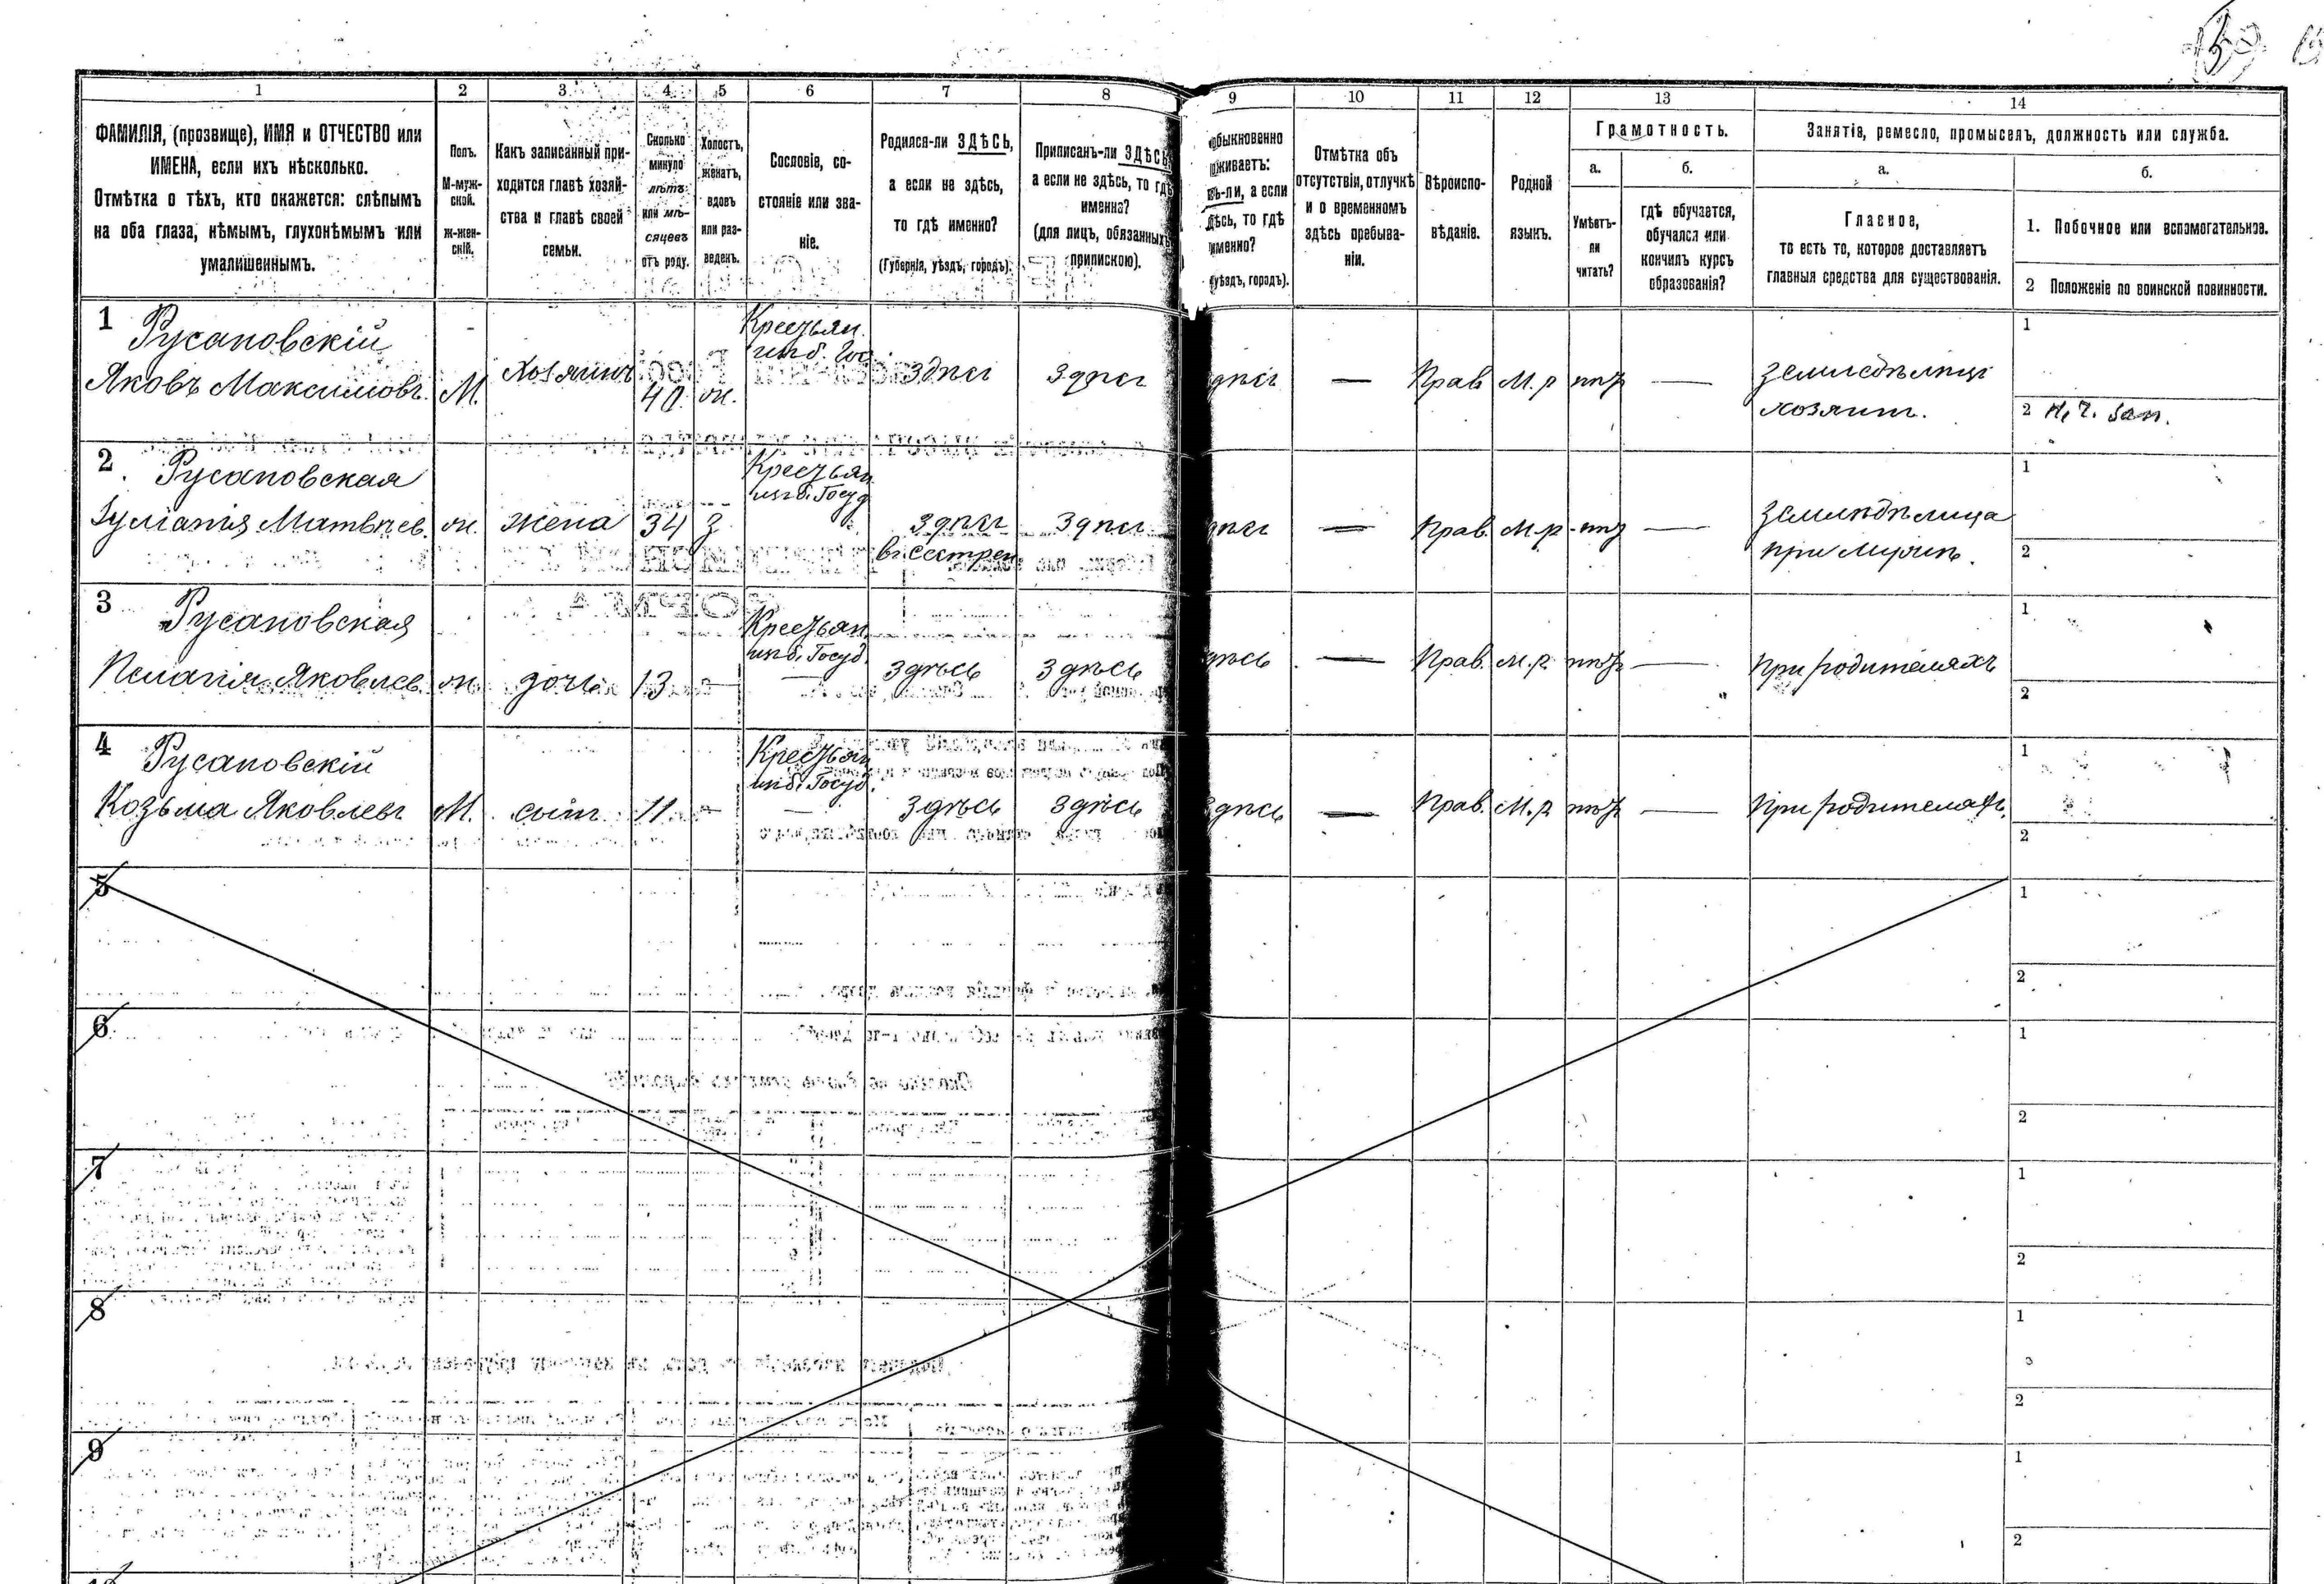 1 2 3 4 5 6 7 8 9 10 11 12 13 14
ФАМИЛІЯ, (прозвище), ИМЯ и ОТЧЕСТВО или
ИМЕНА, если ихъ нѣсколько.
Отмѣтка о тѣхъ, кто окажется: слѣпымъ
на оба глаза, нѣмымъ, глухонѣмымъ или
умалишеннымъ.
Полъ.
М-муж-
ской.
ж-жен-
скій.
Какъ записанный при-
ходится главѣ хозяй-
ства и главѣ своей
семьи.
Сколько
минуло
лѣтъ
или мѣ-
сяцевъ
отъ роду.
Холостъ,
женатъ,
вдовъ
или раз-
веденъ.
Сословіе, со-
стояніе или зва-
ніе.
Родился-ли ЗДѢСЬ,
а если не здѣсь,
то гдѣ именно?
(Губернія, уѣздъ, городъ).
Приписанъ-ли ЗДѢСЬ,
а если не здѣсь, то гдѣ
именно?
(для лицъ, обязанныхъ
припискою).
быкновенно
живаетъ:
ь-ли, а если
ѣсь, то гдѣ
именно?
уѣздъ, городъ).
Отмѣтка объ
отсутствіи, отлучкѣ
и о временномъ
здѣсь пребыва-
ніи.
Вѣроиспо-
вѣданіе.
Родной
языкъ.
Грамотность.
а.
Умѣетъ-
ли
читать?
б.
гдѣ обучается,
обучался или
кончилъ курсъ
образованія?
Занятія, ремесло, промыселъ, должность или служба.
а.
Главное,
то есть то, которое доставляетъ
главныя средства для существованія.
б.
1. Побочное или вспомогательное.
2 Положеніе по воинской повинности.
1 Русановскій Крестьян. 1
из б. Гос
Яковъ Максимовъ. М. хозяинъ 40. ж. здѣсь здѣсь дѣсь — Прав М.р нѣтъ — земледѣлецъ
хозяинъ. 2
2. Русановская Крестьян 1
из б. Госуд
Іуліанія Матвѣев. ж. жена 34 з здѣсь здѣсь дѣсь — Прав. М.р нѣтъ — земледѣлица
при мужѣ. 2
3 Русановская Крестьян 1
из б. Госуд.
Пелагія Яковлев. ж. дочь 13 — здѣсь здѣсь дѣсь — Прав. М.р. нѣтъ — при родителяхъ
2
4 Русановскій Крестьян 1
из б. Госуд.
Козьма Яковлевъ М. сынъ 11 — здѣсь здѣсь здѣсь — Прав. М.р нѣтъ — при родителяхъ.
2
5 1
2
6 1
2
7 1
2
8 1
2
9 1
2